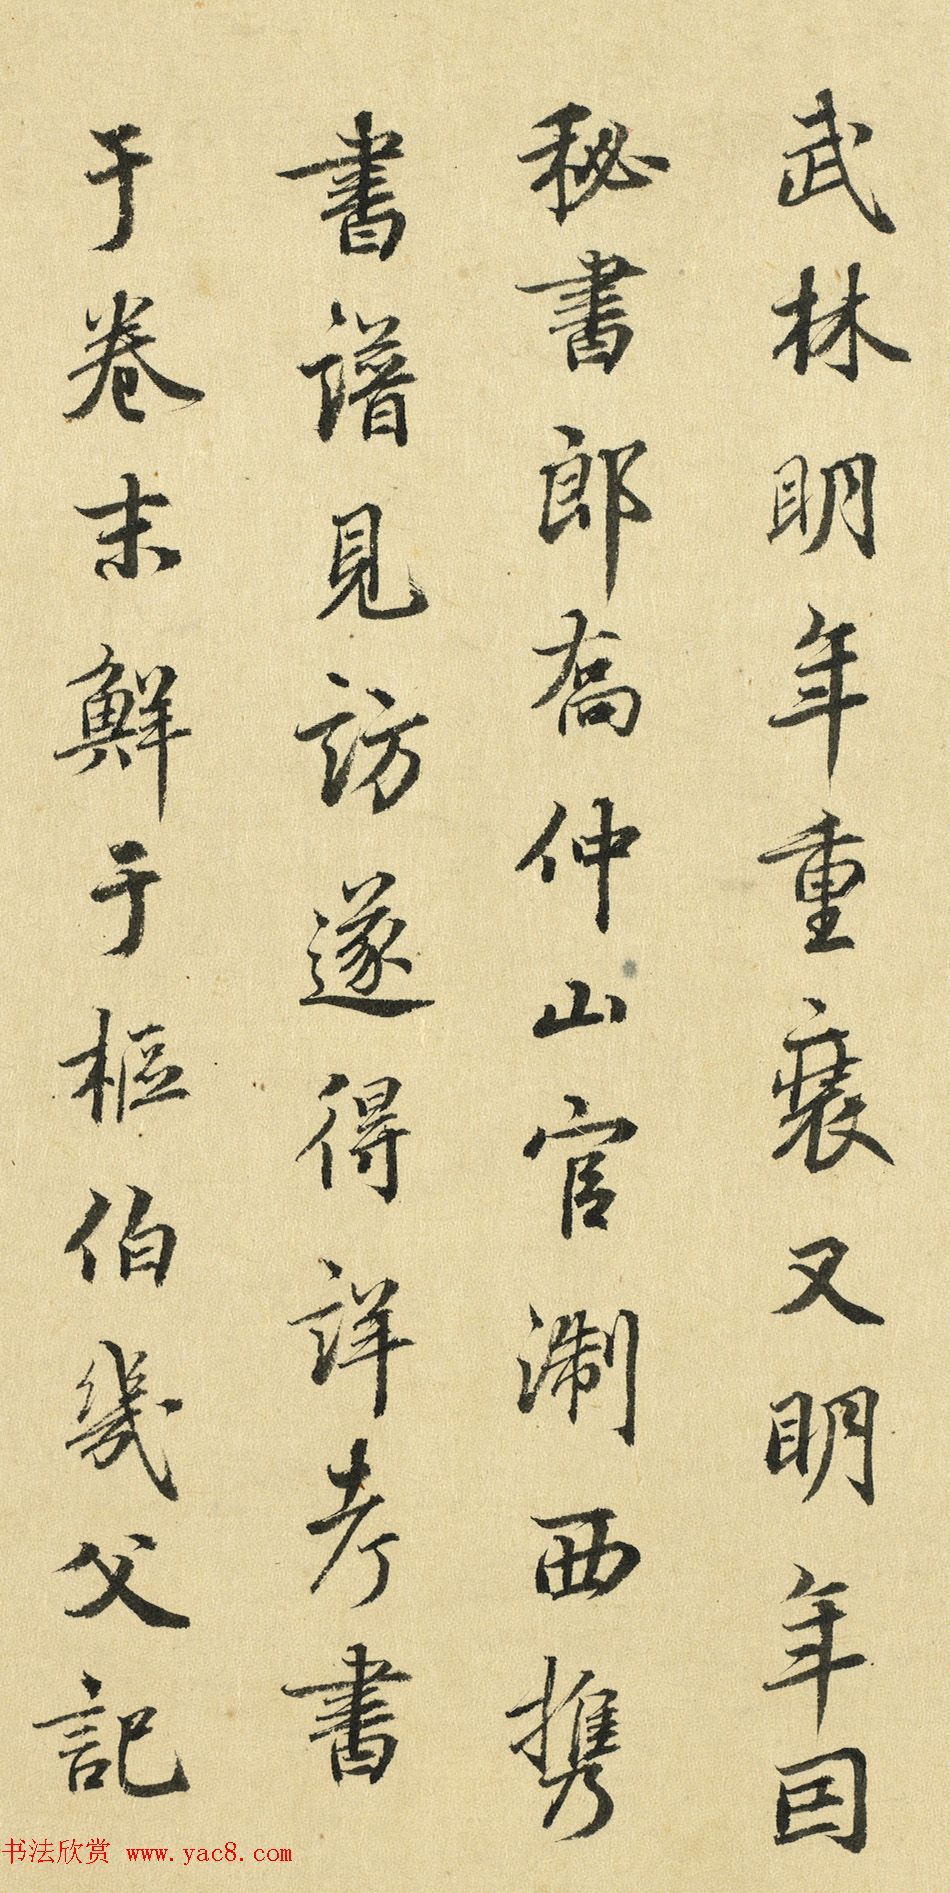 武林明年重裝又明年因
秘書郎喬仲山官淛西攜
書譜見訪遂得詳考書
于卷末鮮于樞伯幾父記
书法欣赏 www.yac8.com